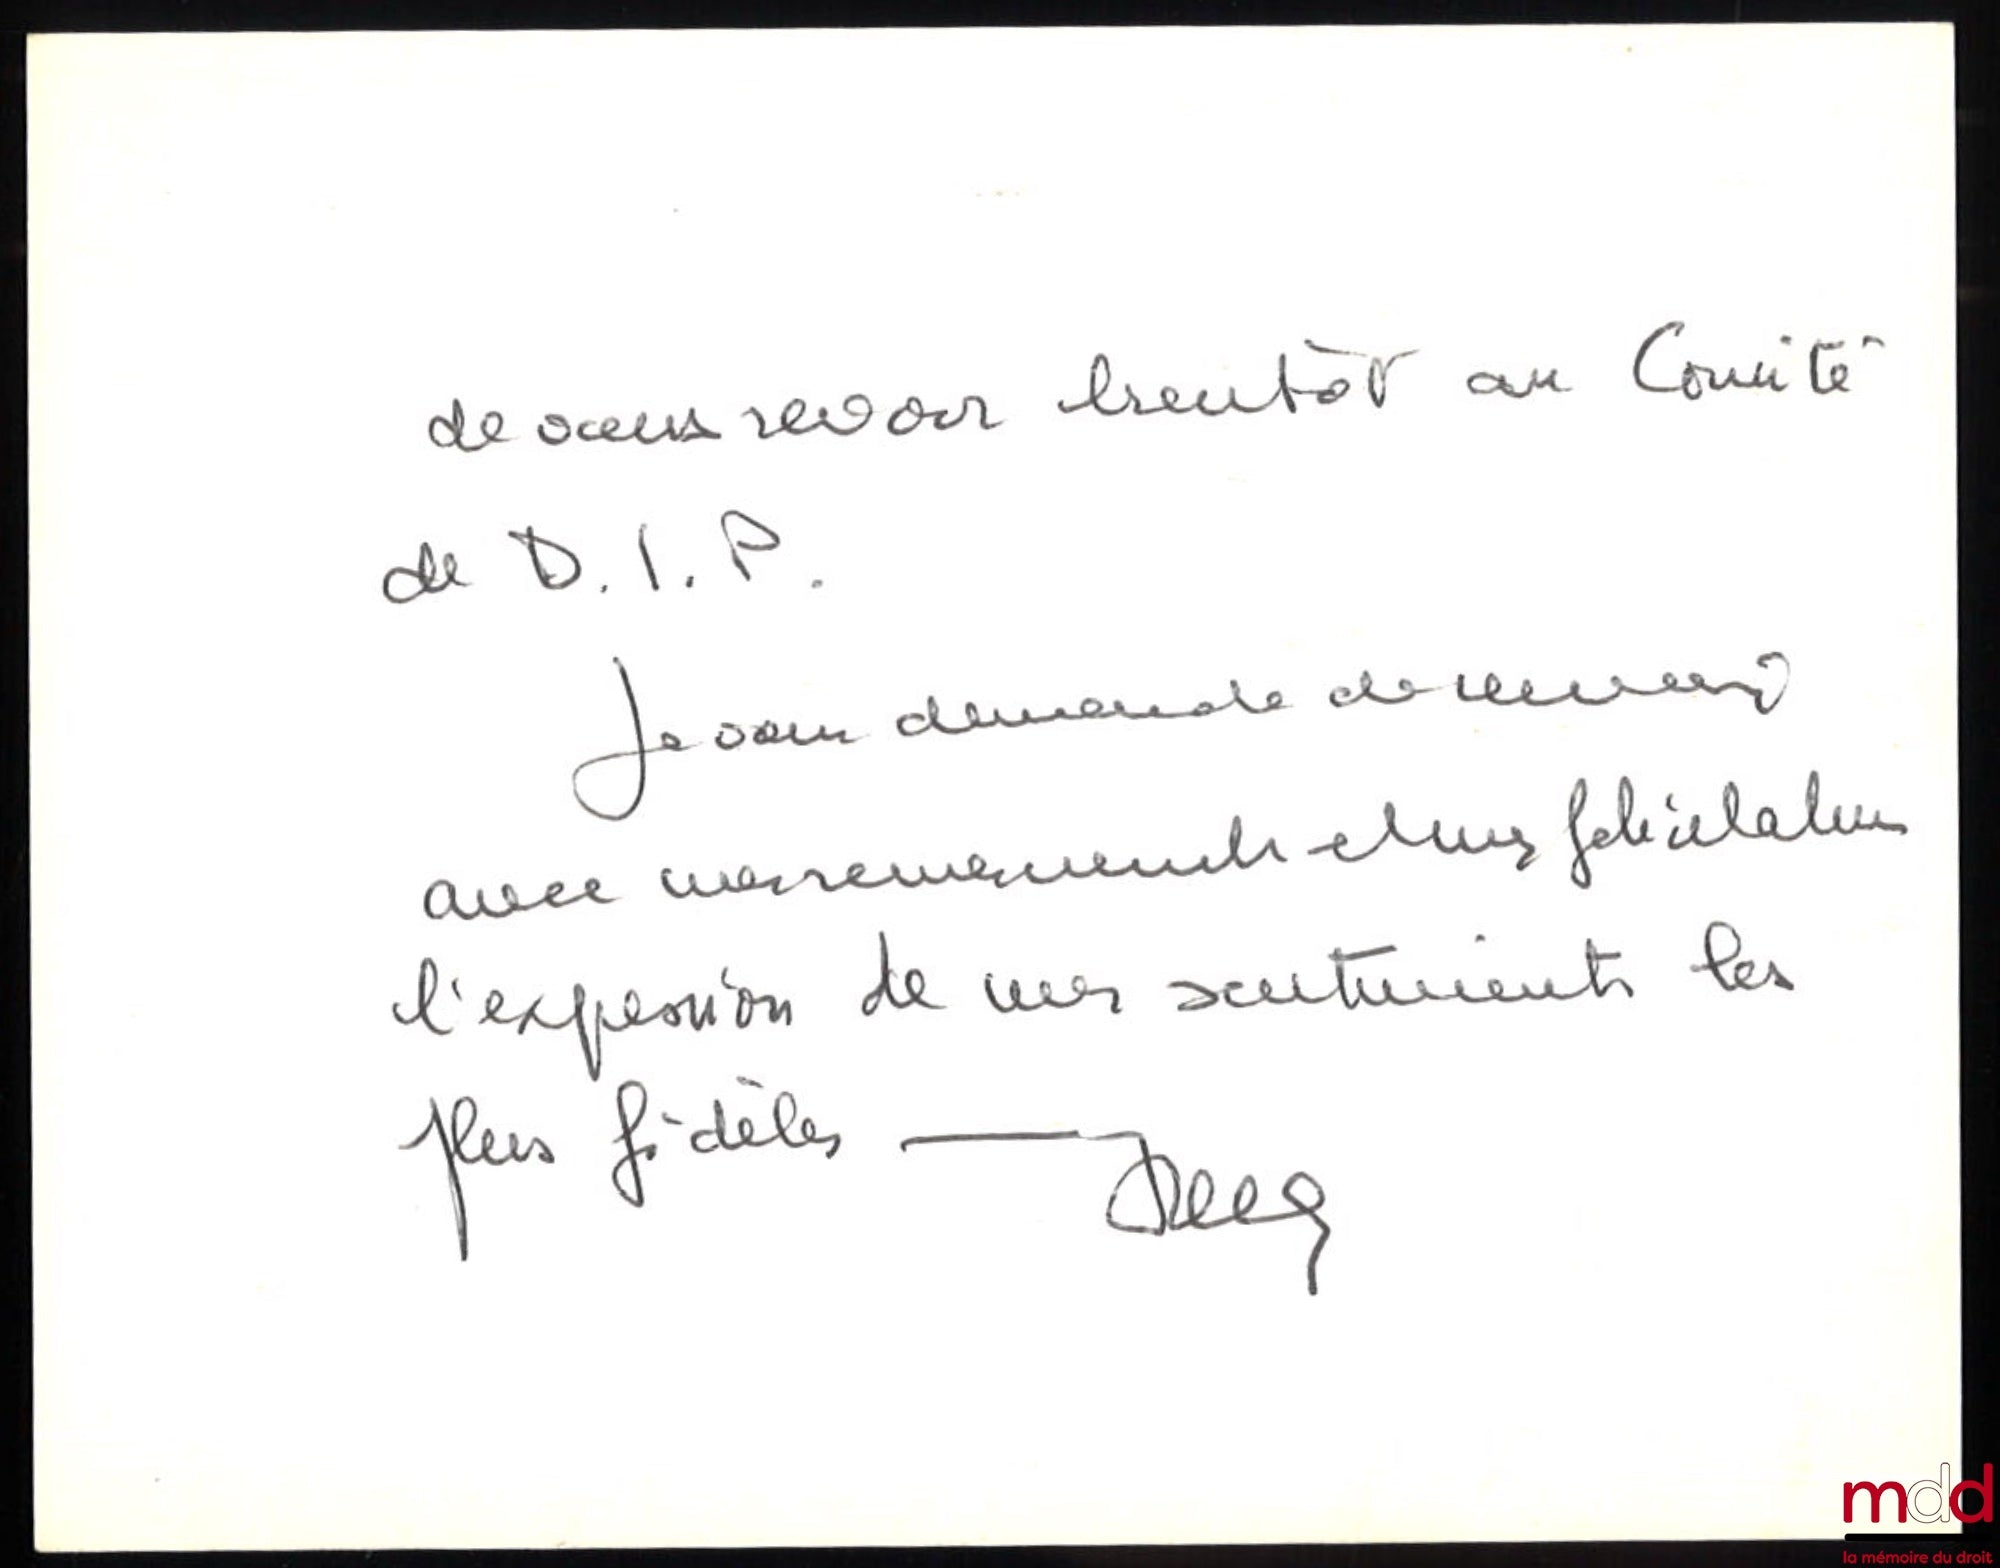 de vous revoir bientôt au Comité
de D.I.P.
Je vous demande de recevoir
avec mes remerciements et mes félicitations
l'expression de mes sentiments les
plus fidèles
mdd
la mémoire du droit